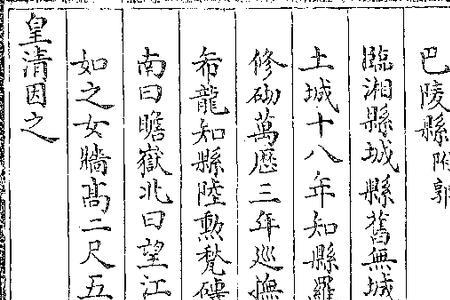 巴陵縣附郭
臨湘縣城縣舊無城
土城十八年知縣羅
修砌萬歷三年巡撫
希龍知縣陸勲甃磚
南曰瞻嶽北曰望江
如之女牆髙二尺五
皇清因之